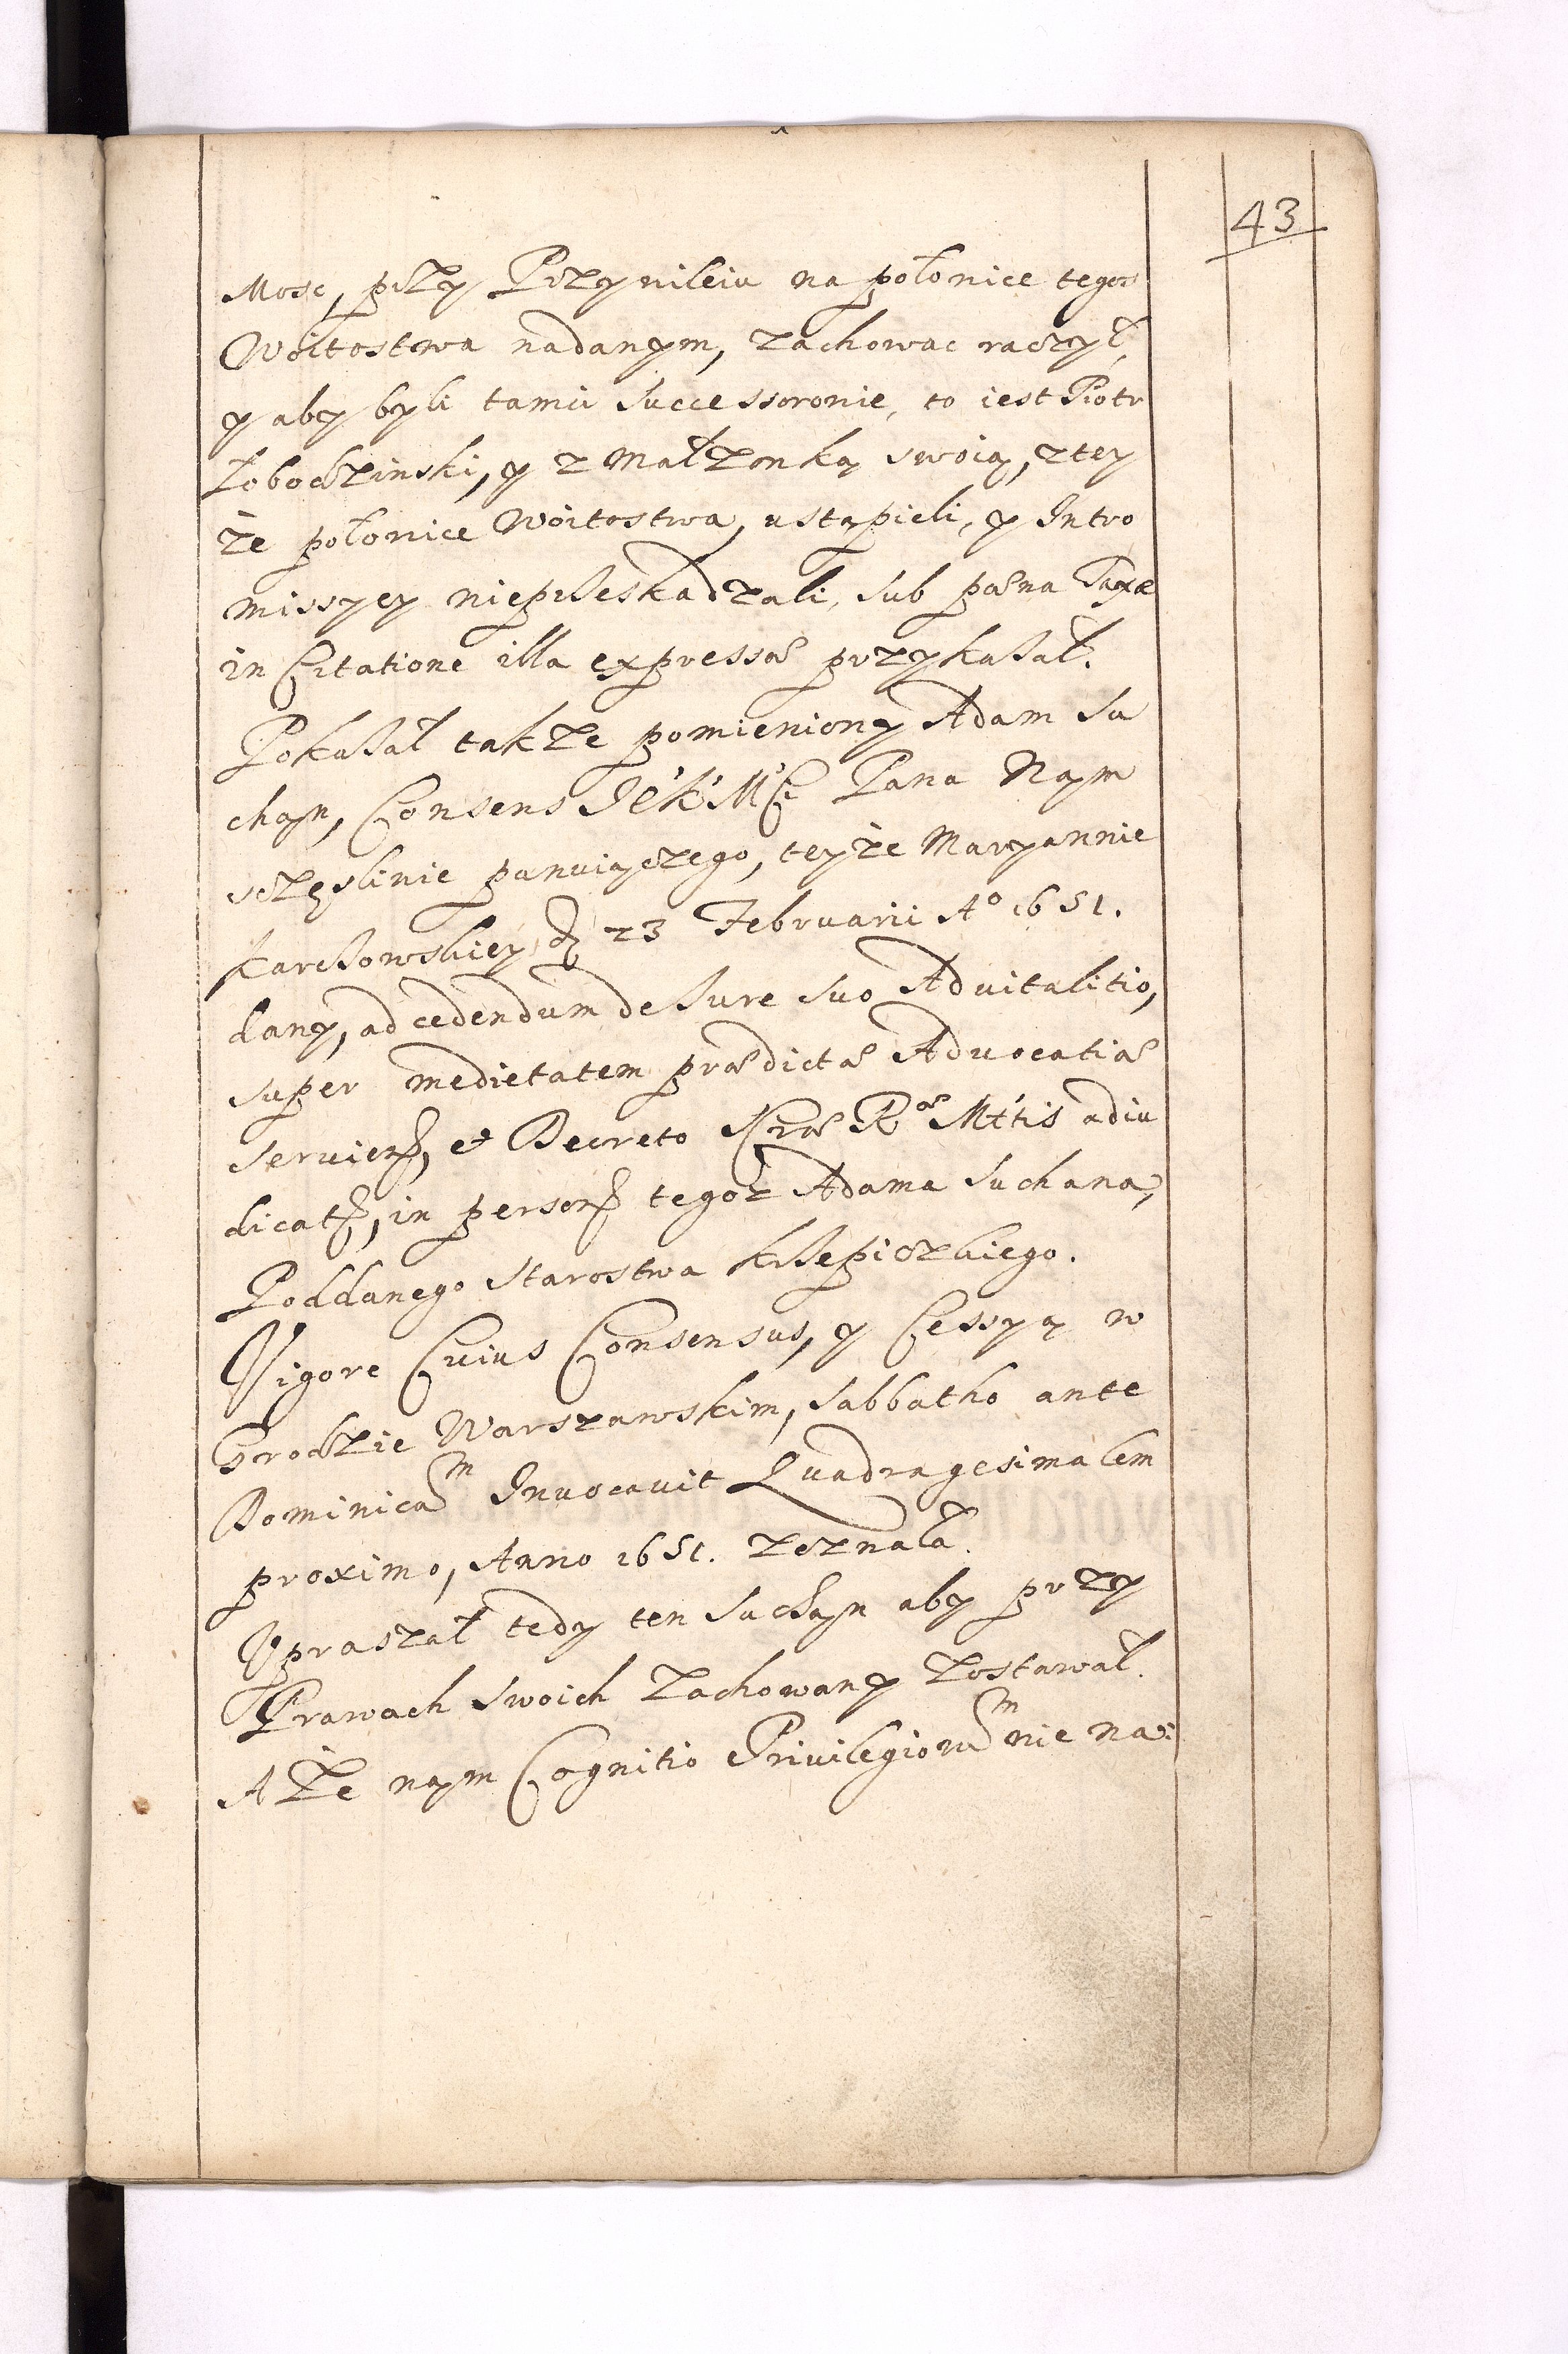 43
Mosc, przy Przywileiu na połowice tegoż
Woitostwa nadanym, zachowac raczył,
y aby byli tamci Successorowie, to iest Piotr
Łobodzinski, y z Małzonką swoią, z tey
że połowice Woitostwa, ustąpieli, y Intro
missyey nieprzeskadzali, sub pœna Taxæ
in Citatione illa expressæ przykazał.
Pokazał takze pomieniony Adam Su
chan, Consens JEK'M'Ci Pana Nam
sczęsliwie panuiączego, teyże Maryannie
Karczowskiey, dẹ 23 Februarii Aº 1651.
dany, ad cedendum de Jure suo Aduitalitio,
super medietatem prædictæ Aduocatiæ
seruien, et Decreto Sræ Ræ Mttis adiu
dicat, in person tegoz Adama Suchana,
Poddanego Starostwa Krzepiczkiego.
Vigore Cuius Consensus, y Cessyą w
Grodzie Warszawskim, Sabbatho ante
Dominicam Inuocauit Quadragesimalem
proximo, Anno 1651. zeznała.
Upraszał tedy ten Suchan aby przy
Prawach swoich zachowany zostawał.
A Że nam Cognitio Priuilegiorum nie na: